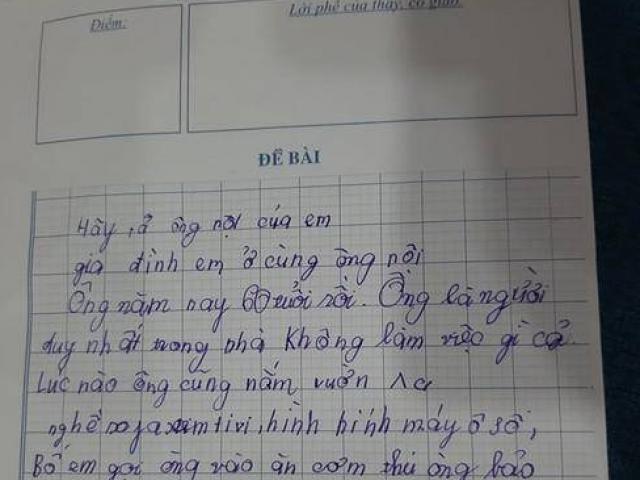 Điểm:
Lời phê của thầy, cô giáo
ĐỀ BÀI
Hãy tả ông nội của em
gia đình em ở cùng ông nội
Ông năm nay 60 tuổi rồi. Ông là người
duy nhất trong nhà không làm việc gì cả
Lúc nào ông cũng nằm vườn ra
nghề xem tivi, hình hính máy ô số,
Bố em gọi ông vào ăn cơm thì ông bảo